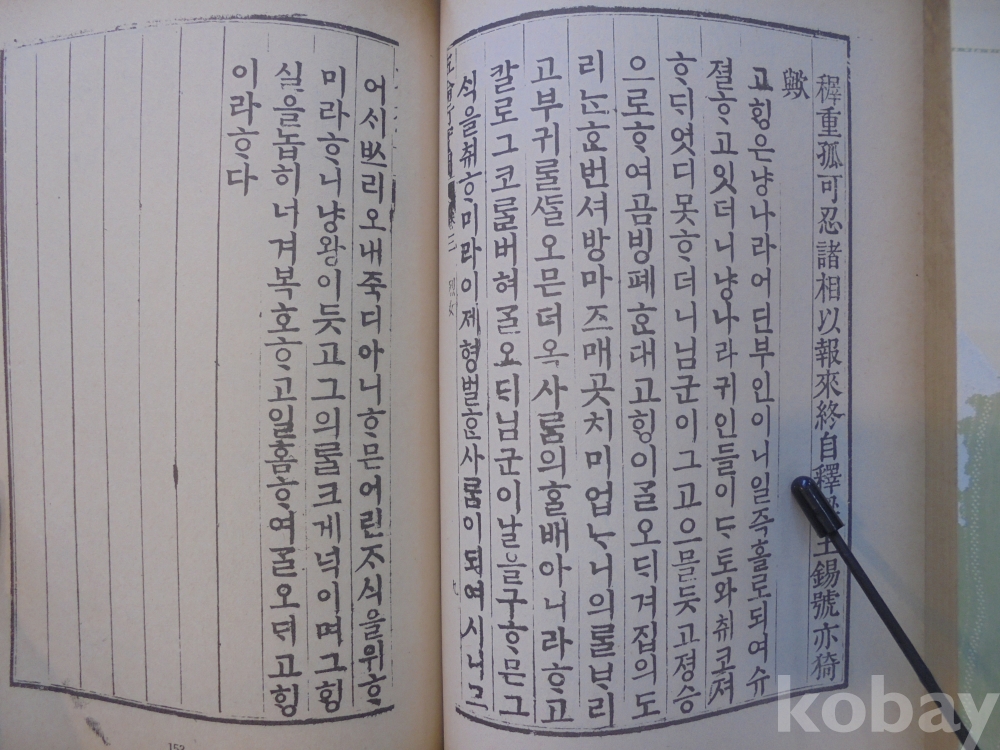 穉重孤可忍諸相以報來終自釋王錫號亦猗
歟
고ᄒᆡᆼ은냥나라어딘부인이니일즉홀로되여슈
졀ᄒᆞ고잇더니냥나라귀인들이ᄃᆞ토와취코져
ᄒᆞᄃᆡ엿디못ᄒᆞ더니님군이그고으믈듯고졍승
으로ᄒᆞ여곰빙폐ᄒᆞᆫ대고ᄒᆡᆼ이ᄀᆞᆯ오ᄃᆡ겨집의도
리ᄂᆞᆫᄒᆞᆫ번셔방마즈매곳치미업ᄂᆞ니의ᄅᆞᆯᄇᆞ리
고부귀ᄅᆞᆯᄯᆞᆯ오믄뎌옥사ᄅᆞᆷ의ᄒᆞᆯ배아니라ᄒᆞ고
칼로그코ᄅᆞᆯ버혀ᄀᆞᆯ오ᄃᆡ님군이날을구ᄒᆞ믄그
ᄉᆡᆨ을취ᄒᆞ미라이제형벌ᄒᆞᆫ사ᄅᆞᆷ이되여시니그
卷三 烈女
어시ᄇᆞ리오내죽디아니ᄒᆞ믄어린ᄌᆞ식을위ᄒᆞ
미라ᄒᆞ니냥왕이듯고그의ᄅᆞᆯ크게넉이며그ᄒᆡᆼ
실을놉히너겨복호ᄒᆞ고일홈ᄒᆞ여ᄀᆞᆯ오ᄃᆡ고ᄒᆡᆼ
이라ᄒᆞ다
kobay